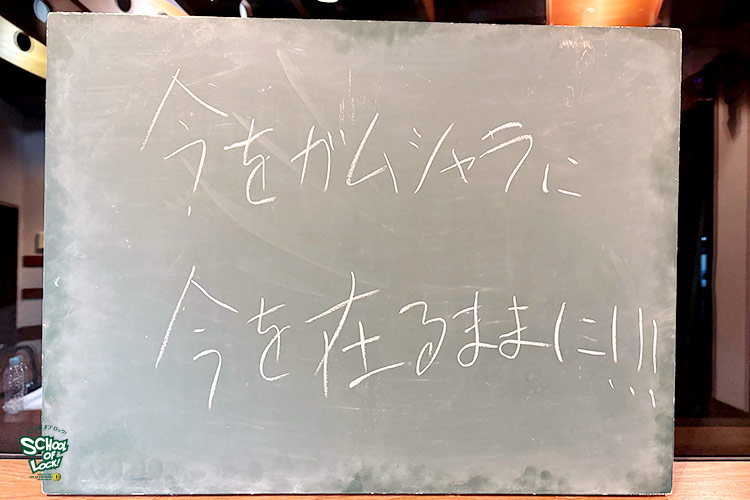 今をガムシャラに
今を在るままに!!!
SCHOOL
OF
LOCK!